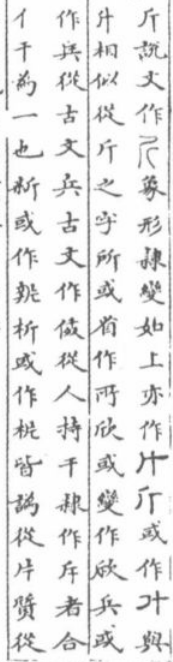 斤說文作象形隸變如上亦作斤或作與
升相似從斤之字所或省作所欣或變作欣兵或
作兵從古文兵古文作從人持干隸作斥者合
亻干爲一也斯或作析或作皆譌從片質從